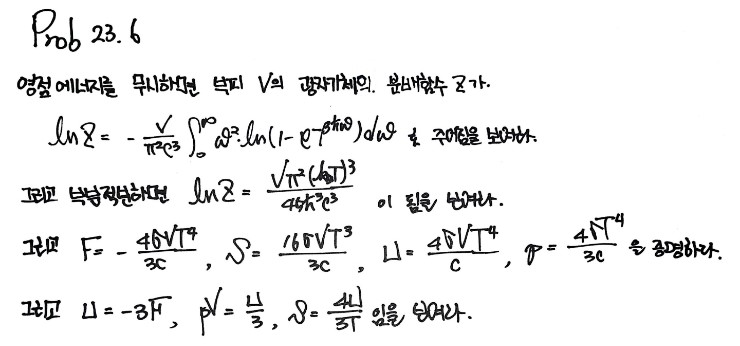 Prob 23.6
영점 에너지를 무시하면 부피 V의 광자기체의 분배함수 Z가.
lnZ = - V/π²c³ ∫₀^∞ ω² ln(1 - e^{-βħω}) dω 로 주어짐을 보여라.
그리고 부분적분하면 lnZ = Vπ²(k_BT)³/45ħ³c³ 이 됨을 보여라.
그리고 F = - 4σVT⁴/3c , S = 16σVT³/3c , U = 4σVT⁴/c , p = 4σT⁴/3c 을 증명하라.
그리고 U = -3F, pV = U/3 , S = 4U/3T 임을 보여라.